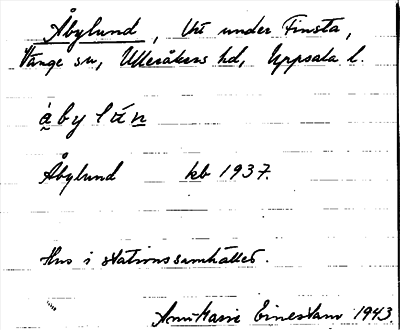 Åbylund, Vrt under Finsta,
Vänge sn, Ulleråkers hd, Uppsala l.
åbylún
Åbylund kb 1937.
Hus i stationssamhället.
Ann-Marie 1943.